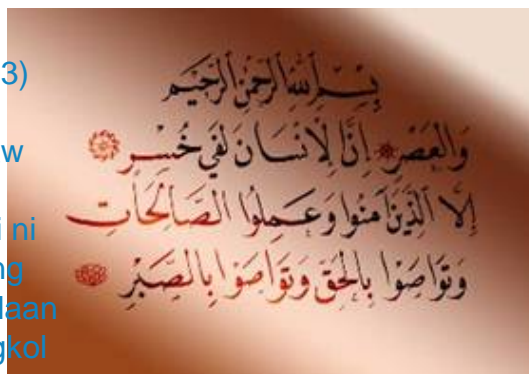 3)
w
ni
ng
daan
gkol
بِسْمِ ٱللَّهِ ٱلرَّحْمَٰنِ ٱلرَّحِيمِ
وَالْعَصْرِ إِنَّ الْإِنْسَانَ لَفِي خُسْرٍ
إِلَّا الَّذِينَ آمَنُوا وَعَمِلُوا الصَّالِحَاتِ
وَتَوَاصَوْا بِالْحَقِّ وَتَوَاصَوْا بِالصَّبْرِ